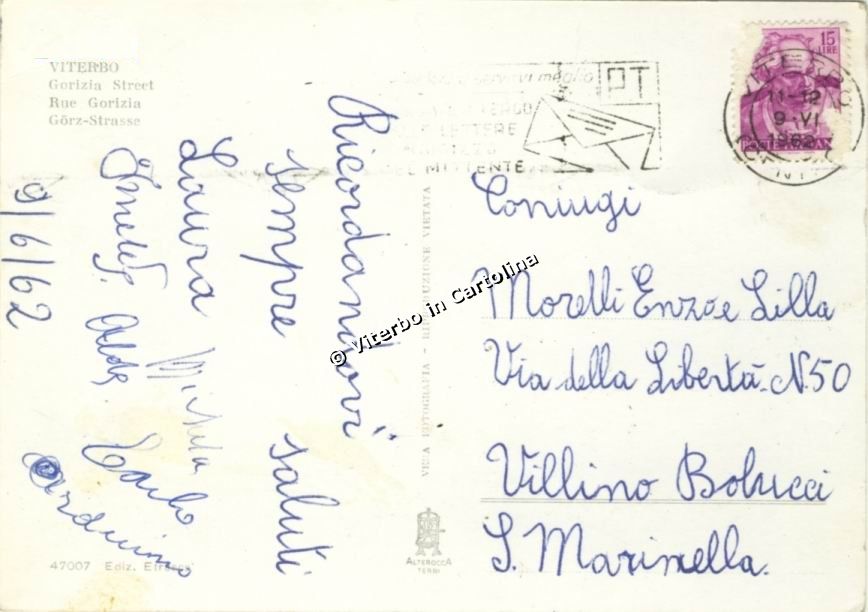 VITERBO
Gorizia Street
Rue Gorizia
Görz-Strasse
servirvi meglio
PT
LETTERE
MITTENTE
15
LIRE
VITERBO
11-12
9 VI
1962
Ricordandovi
sempre saluti
Laura Michela
Aldo Carlo
Arduino
9/6/62
Coniugi
Morelli Enzo e Lilla
Via della Libertà N. 50
Villino Bolucci
S. Marinella.
VERA FOTOGRAFIA - RIPRODUZIONE VIETATA
© Viterbo in Cartolina
47007 Ediz.
ALTEROCCA
TERNI